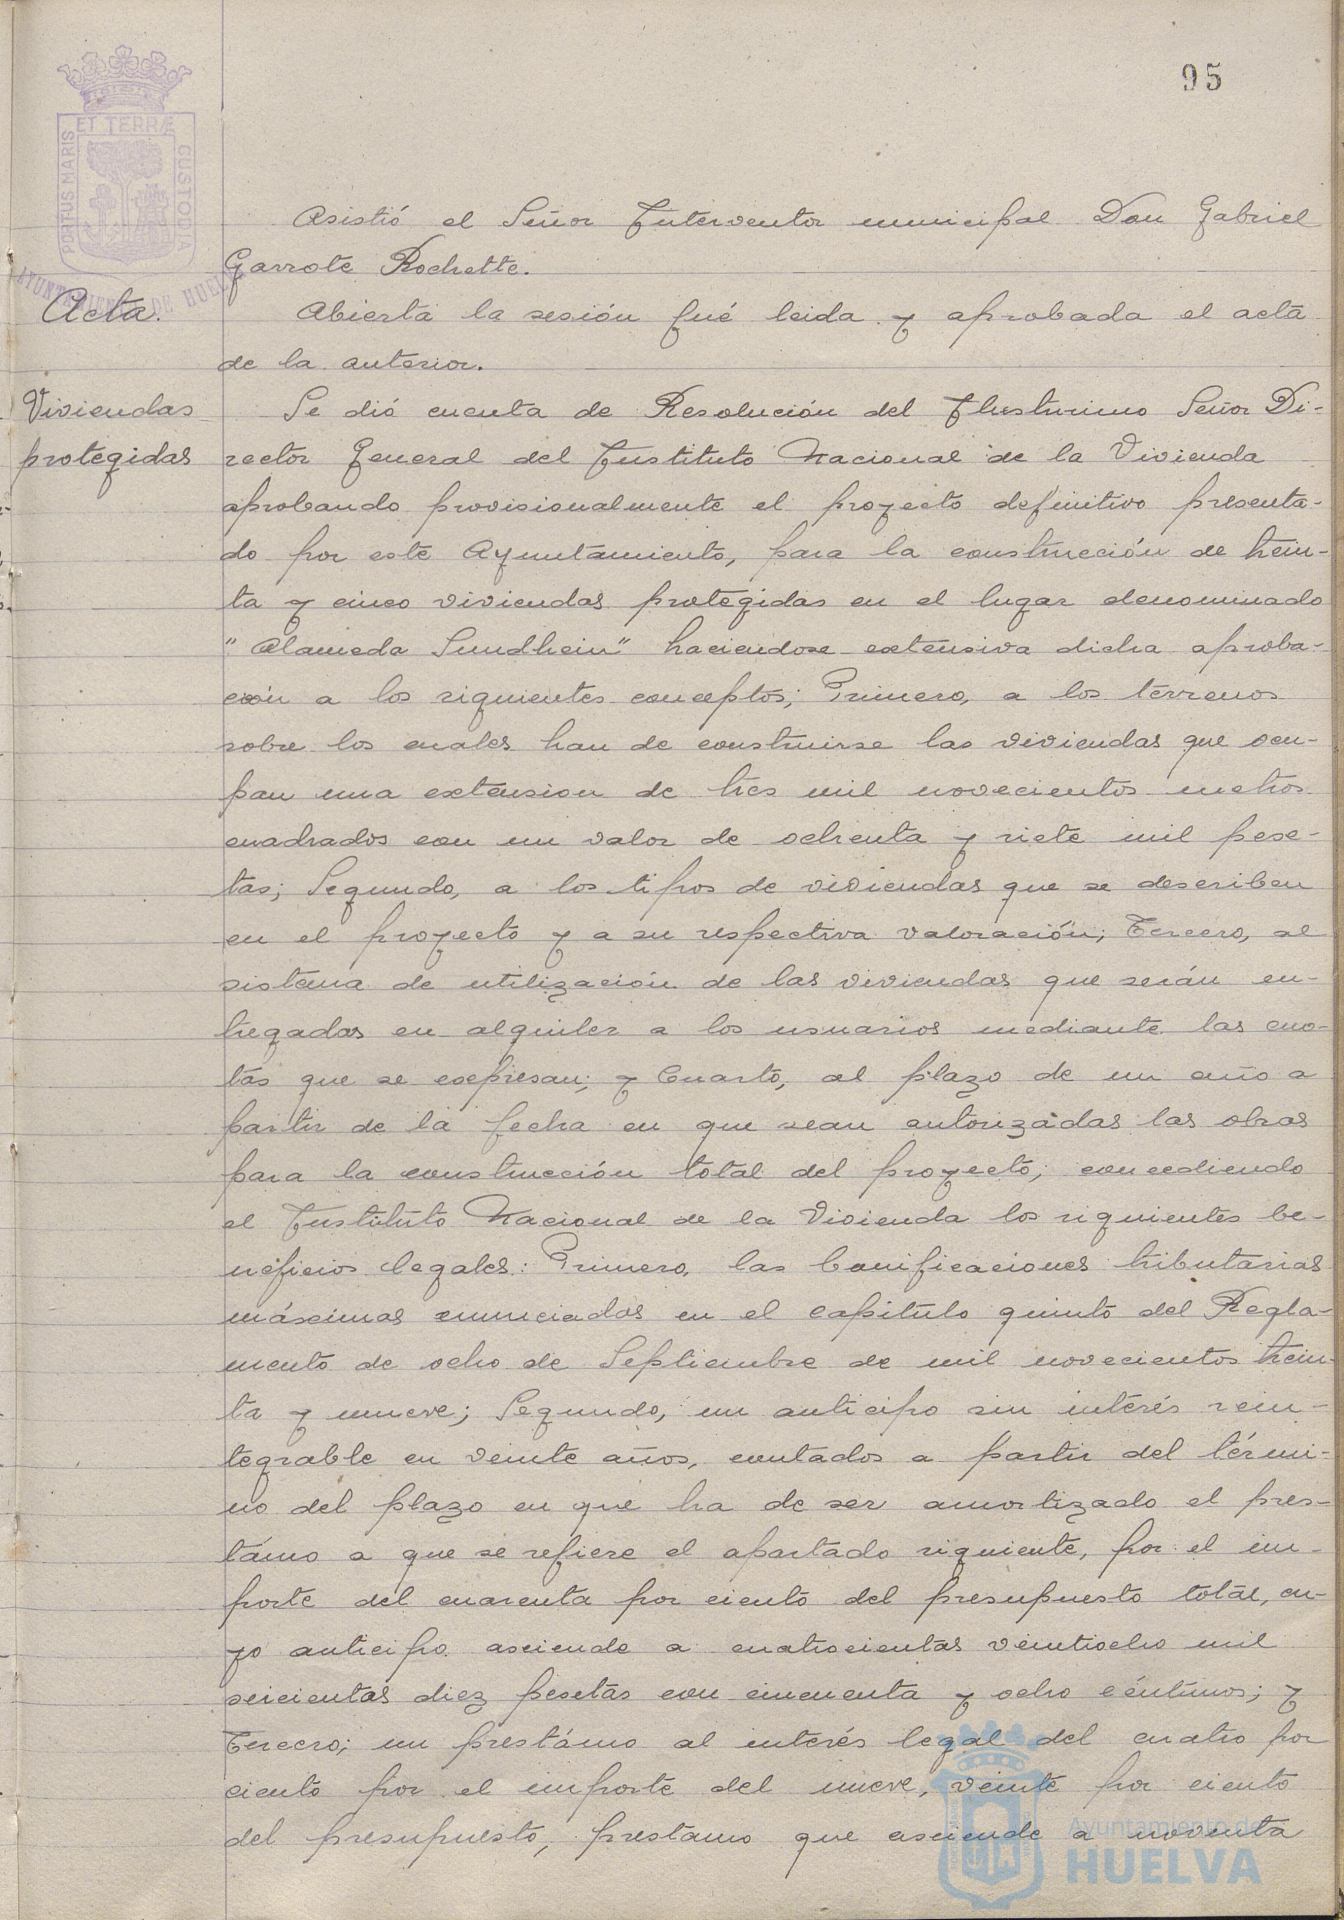 95
PORTUS MARIS ET TERRÆ CUSTODIA
AYUNTAMIENTO DE HUELVA
Asistió el Señor Interventor municipal Don Gabriel
Garrote Rochette.
Acta.
Abierta la sesión fué leida y aprobada el acta
de la anterior.
Viviendas
protegidas
Se dió cuenta de Resolución del Ilustrisimo Señor Di-
rector General del Instituto Nacional de la Vivienda
aprobando provisionalmente el proyecto definitivo presenta-
do por este Ayuntamiento, para la construcción de trein-
ta y cinco viviendas protegidas en el lugar denominado
"Alameda Sundhein" haciendose extensiva dicha aproba-
ción a los siguientes conceptos; Primero, a los terrenos
sobre los cuales han de construirse las viviendas que ocu-
pan una extension de tres mil novecientos metros
cuadrados con un valor de ochenta y siete mil pese-
tas; Segundo, a los tipos de viviendas que se describen
en el proyecto y a su respectiva valoración; Tercero, al
sistema de utilización de las viviendas que serán en-
tregadas en alquiler a los usuarios mediante las cuo-
tas que se expresan; y Cuarto, al plazo de un año a
partir de la fecha en que sean autorizadas las obras
para la construcción total del proyecto; concediendo
el Instituto Nacional de la Vivienda los siguientes be-
neficios legales: Primero, las bonificaciones tributarias
máximas enunciadas en el capítulo quinto del Regla-
mento de ocho de Septiembre de mil novecientos trein-
ta y nueve; Segundo, un anticipo sin interés rein-
tegrable en veinte años, contados a partir del térmi-
no del plazo en que ha de ser amortizado el pres-
támo a que se refiere el apartado siguiente, por el im-
porte del cuarenta por ciento del presupuesto total, cu-
yo anticipo asciende a cuatrocientas veintiocho mil
seicientas diez pesetas con cincuenta y ocho céntimos; y
Tercero; un prestámo al interés legal del cuatro por
ciento por el importe del nueve, veinte por ciento
del presupuesto, prestamo que asciende a noventa
Ayuntamiento de
HUELVA